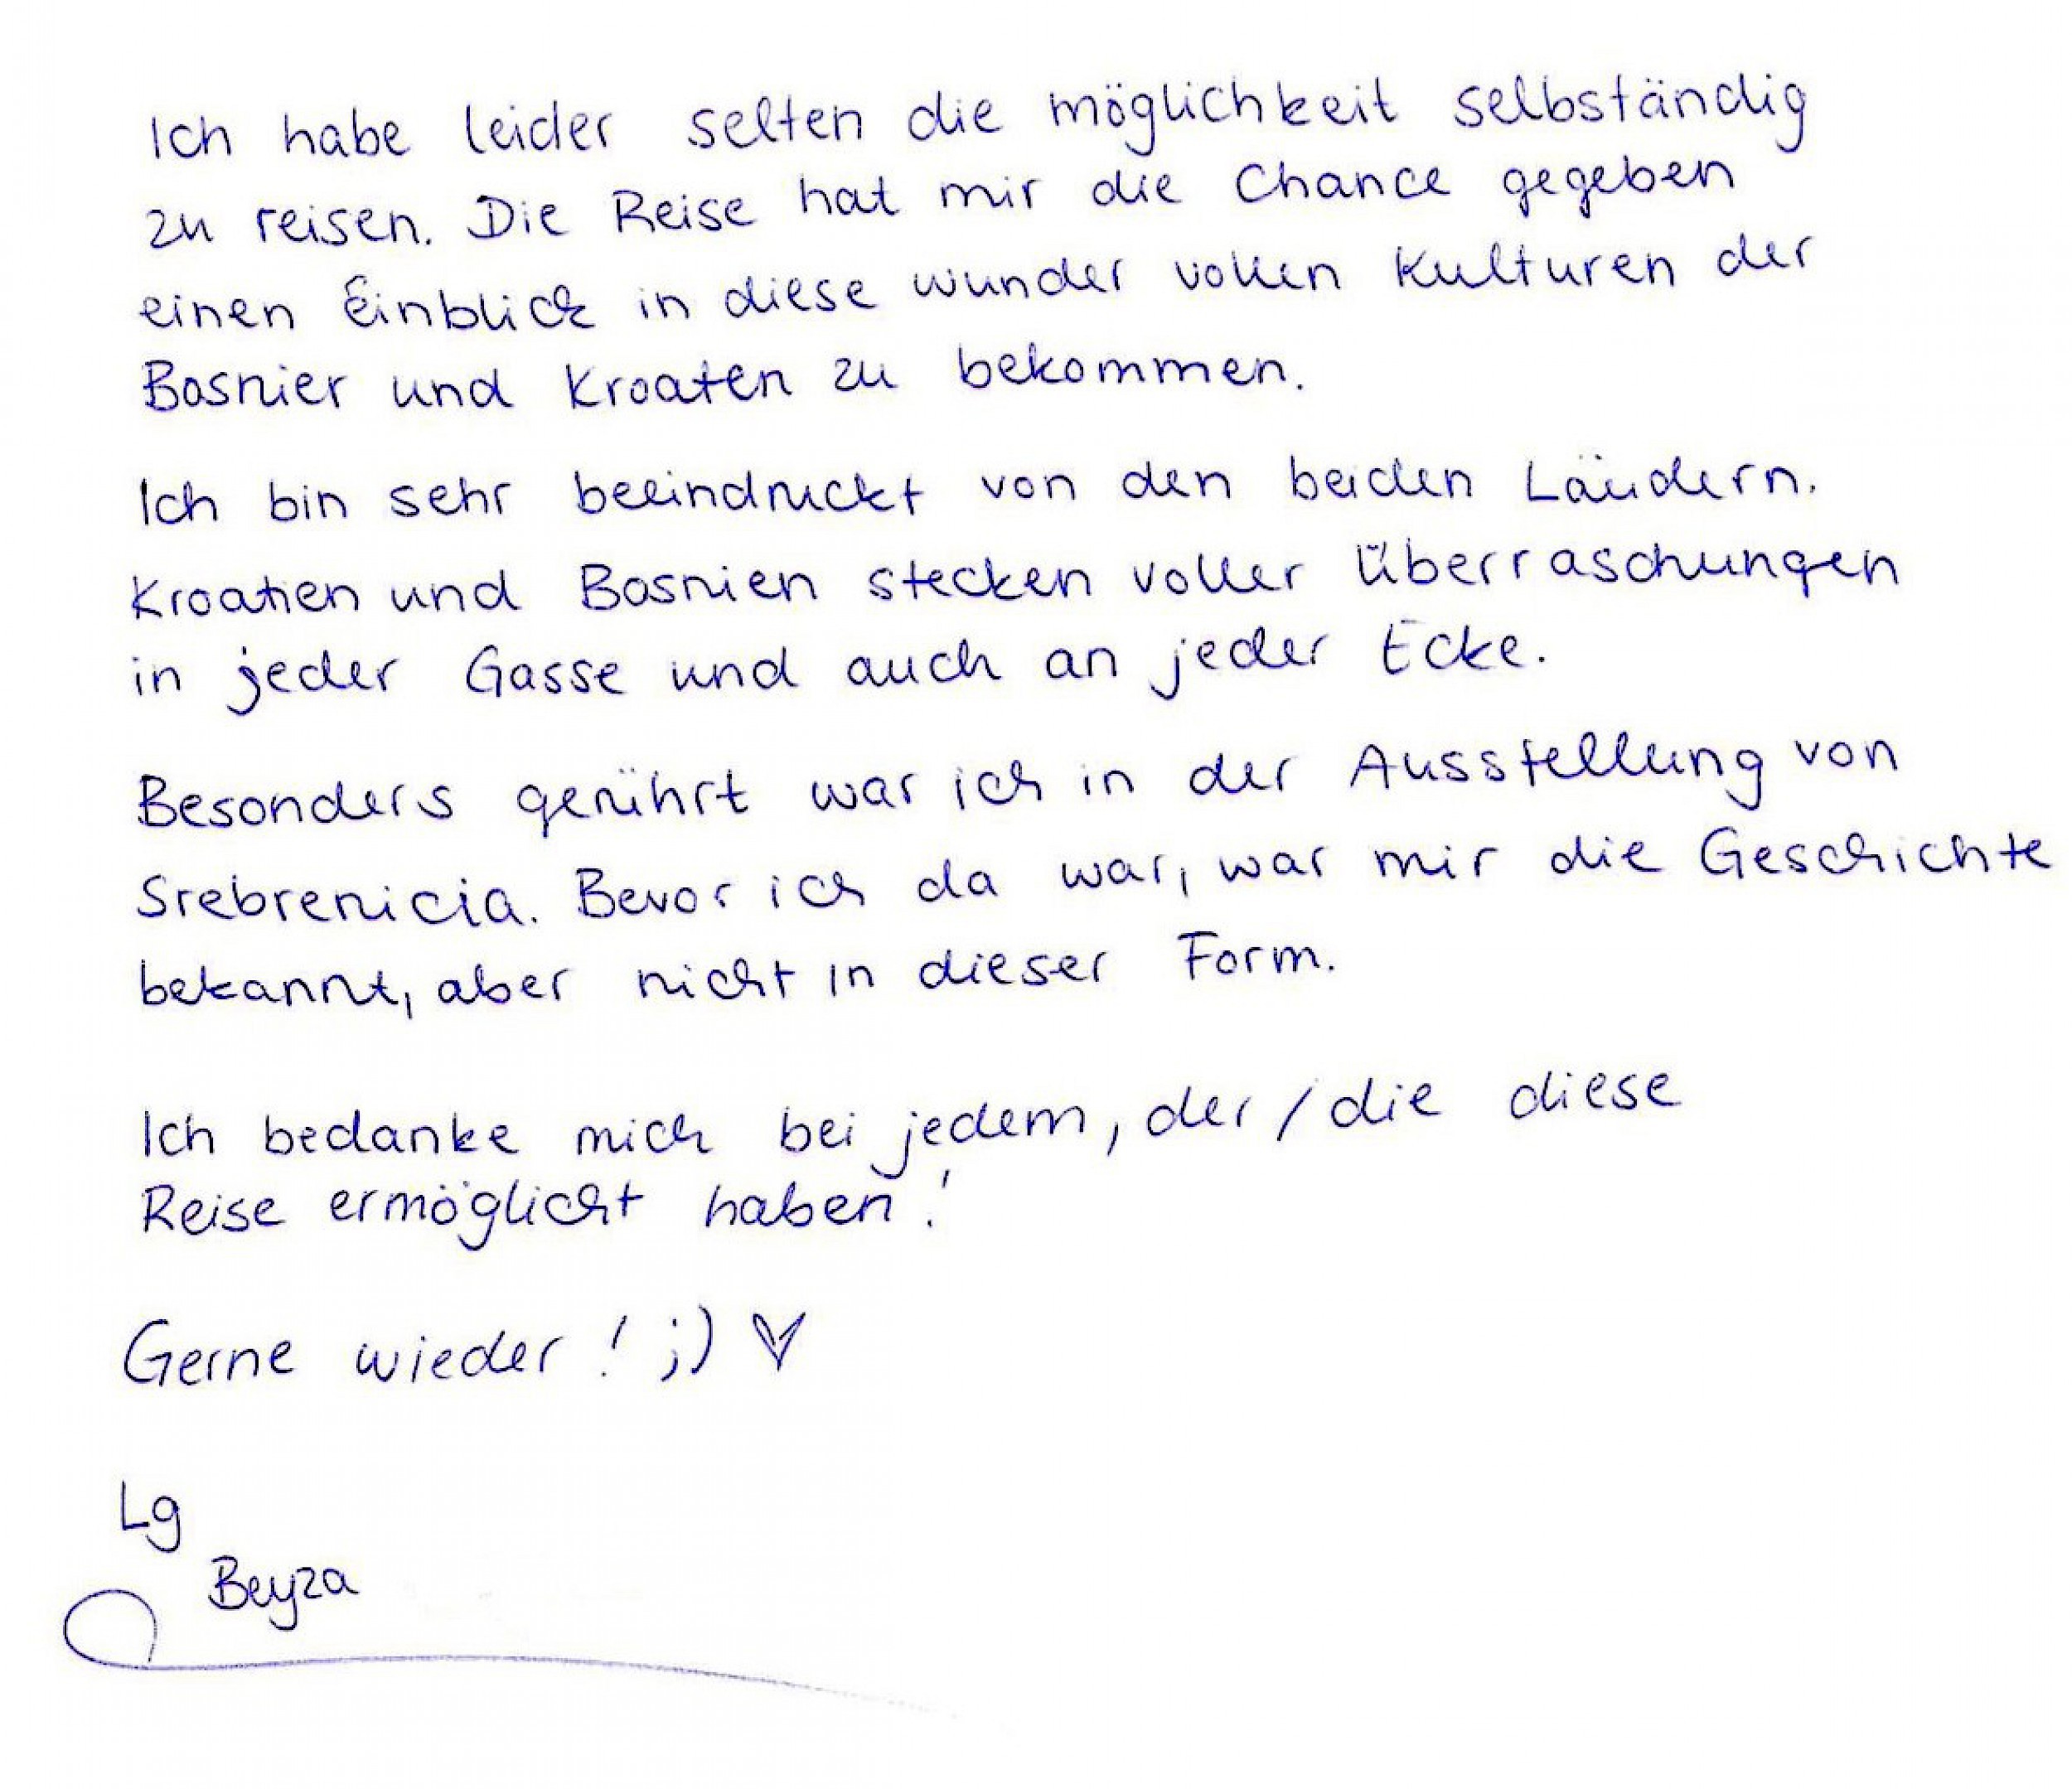 Ich habe leider selten die möglichkeit selbständig
zu reisen. Die Reise hat mir die Chance gegeben
einen Einblick in diese wunder vollen Kulturen der
Bosnier und Kroaten zu bekommen.
Ich bin sehr beeindruckt von den beiden Ländern.
Kroatien und Bosnien stecken voller Überraschungen
in jeder Gasse und auch an jeder Ecke.
Besonders gerührt war ich in der Ausstellung von
Srebrenicia. Bevor ich da war, war mir die Geschichte
bekannt, aber nicht in dieser Form.
Ich bedanke mich bei jedem, der / die diese
Reise ermöglicht haben!
Gerne wieder! ;) ♥
Lg
Beyza